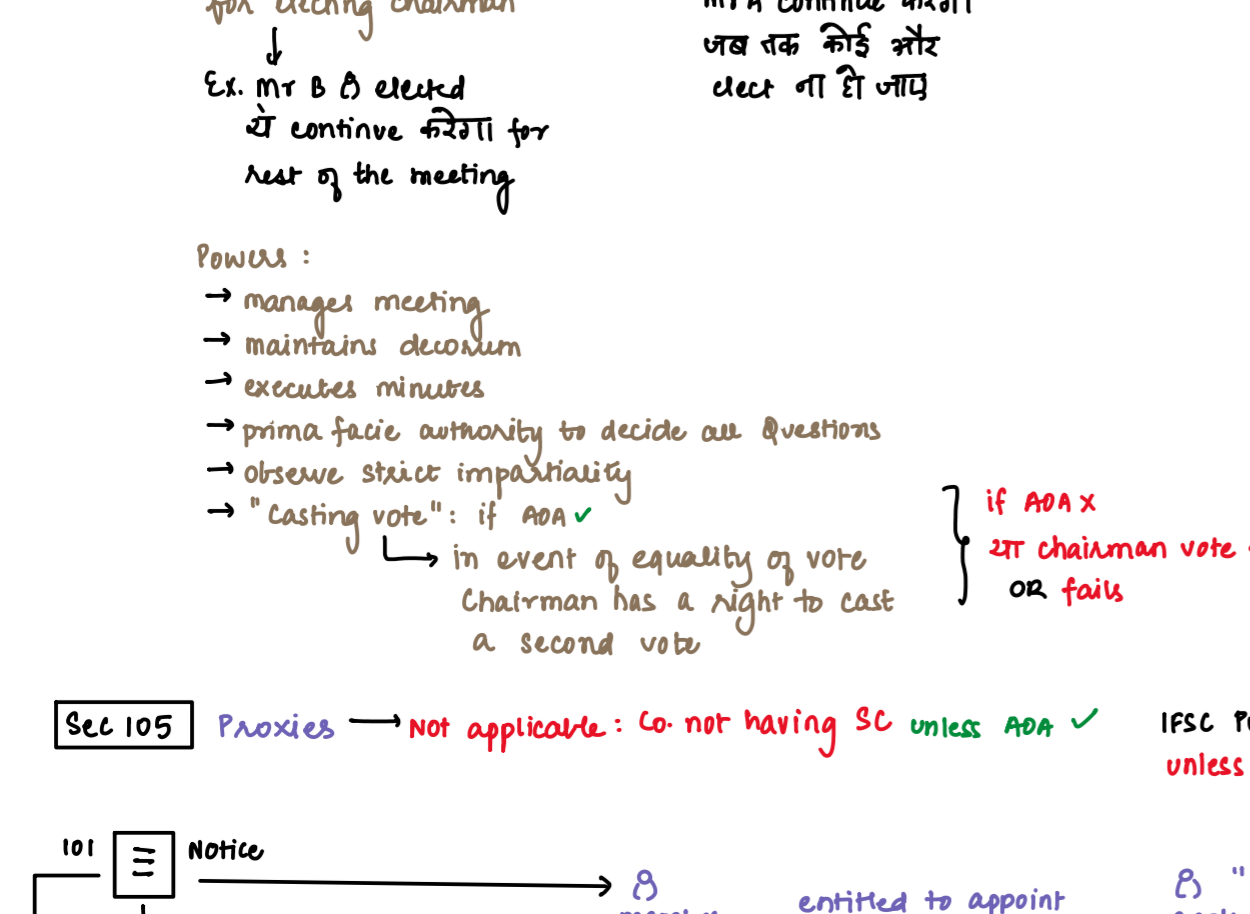 for electing chairman
Mr A continue करेगा
जब तक कोई और
elect ना हो जाए
Ex. Mr B elected
ये continue करेगा for
rest of the meeting
Powers :
→ manages meeting
→ maintains decorum
→ executes minutes
→ prima facie authority to decide all Questions
→ observe strict impartiality
→ "Casting vote": if AOA ✓
in event of equality of vote
Chairman has a right to cast
a second vote
if AOA X
chairman vote
OR fails
Sec 105 Proxies → Not applicable : Co. not having SC unless AOA ✓
IFSC
unless
101 Notice
entitled to appoint
"